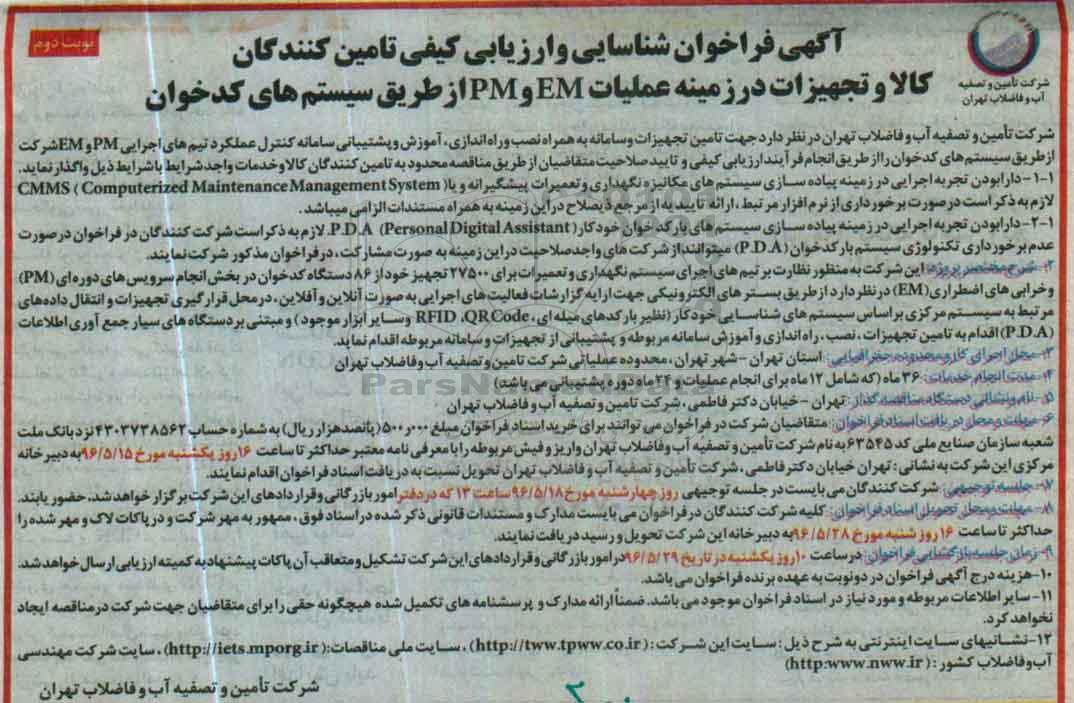 نوبت دوم
شرکت تأمین و تصفیه
آب و فاضلاب تهران
آگهی فراخوان شناسایی و ارزیابی کیفی تامین کنندگان
کالا و تجهیزات در زمینه عملیات EM و PM از طریق سیستم های کدخوان
شرکت تأمین و تصفیه آب و فاضلاب تهران در نظر دارد جهت تامین تجهیزات و سامانه به همراه نصب و راه اندازی، آموزش و پشتیبانی سامانه کنترل عملکرد تیم های اجرایی PM و EM شرکت
از طریق سیستم های کدخوان را از طریق انجام فرآیند ارزیابی کیفی و تایید صلاحیت متقاضیان از طریق مناقصه محدود به تامین کنندگان کالا و خدمات واجد شرایط با شرایط ذیل واگذار نماید.
۱-۱- دارا بودن تجربه اجرایی در زمینه پیاده سازی سیستم های مکانیزه نگهداری و تعمیرات پیشگیرانه و یا CMMS ( Computerized Maintenance Management System )
لازم به ذکر است در صورت برخورداری از نرم افزار مرتبط، ارائه تایید به از مرجع ذیصلاح در این زمینه به همراه مستندات الزامی میباشد.
۱-۲- دارا بودن تجربه اجرایی در زمینه پیاده سازی سیستم های بارکدخوان خودکار P.D.A (Personal Digital Assistant ). لازم به ذکر است شرکت کنندگان در فراخوان در صورت
عدم برخورداری تکنولوژی سیستم بارکدخوان (P.D.A) میتوانند از شرکت های واجد صلاحیت در این زمینه به صورت مشارکت، در فراخوان مذکور شرکت نمایند.
۲- شرح مختصر پروژه: این شرکت به منظور نظارت بر تیم های اجرای سیستم نگهداری و تعمیرات برای ۲۷۵۰۰ تجهیز خود از ۸۶ دستگاه کدخوان در بخش انجام سرویس های دوره ای (PM)
و خرابی های اضطراری (EM) در نظر دارد از طریق بستر های الکترونیکی جهت ارایه گزارشات فعالیت های اجرایی به صورت آنلاین و آفلاین، در محل قرارگیری تجهیزات و انتقال داده های
مرتبط به سیستم مرکزی بر اساس سیستم های شناسایی خودکار (نظیر بارکدهای میله ای، RFID ،QRCode و سایر ابزار موجود) و مبتنی بر دستگاه های سیار جمع آوری اطلاعات
(P.D.A) اقدام به تامین تجهیزات، نصب، راه اندازی و آموزش سامانه مربوطه و پشتیبانی از تجهیزات و سامانه مربوطه اقدام نماید.
۳- محل اجرای کار و محدوده جغرافیایی: استان تهران - شهر تهران، محدوده عملیاتی شرکت تامین و تصفیه آب و فاضلاب تهران
۴- مدت انجام خدمات: ۳۶ ماه (که شامل ۱۲ ماه برای انجام عملیات و ۲۴ ماه دوره پشتیبانی می باشد)
ParsNamadData
۵- نام و نشانی دستگاه مناقصه گذار: تهران - خیابان دکتر فاطمی، شرکت تامین و تصفیه آب و فاضلاب تهران
۶- مهلت و محل دریافت اسناد فراخوان: متقاضیان شرکت در فراخوان می توانند برای خرید اسناد فراخوان مبلغ ۵۰۰ر۰۰۰ (پانصد هزار ریال) به شماره حساب ۴۳۰۳۷۳۸۵۶۲ نزد بانک ملت
شعبه سازمان صنایع ملی کد ۶۳۵۴۵ به نام شرکت تأمین و تصفیه آب و فاضلاب تهران واریز و فیش مربوطه را با معرفی نامه معتبر حداکثر تا ساعت ۱۶ روز یکشنبه مورخ ۹۶/۵/۱۵ به دبیرخانه
مرکزی این شرکت به نشانی: تهران خیابان دکتر فاطمی، شرکت تأمین و تصفیه آب و فاضلاب تهران تحویل نسبت به دریافت اسناد فراخوان اقدام نمایند.
۷- جلسه توجیهی: شرکت کنندگان می بایست در جلسه توجیهی روز چهارشنبه مورخ ۹۶/۵/۱۸ ساعت ۱۳ که در دفتر امور بازرگانی و قراردادهای این شرکت برگزار خواهد شد، حضور یابند.
۸- مهلت و محل تحویل اسناد فراخوان: کلیه شرکت کنندگان در فراخوان می بایست مدارک و مستندات قانونی ذکر شده در اسناد فوق، ممهور به مهر شرکت و در پاکات لاک و مهر شده را
حداکثر تا ساعت ۱۶ روز شنبه مورخ ۹۶/۵/۲۸ به دبیرخانه این شرکت تحویل و رسید دریافت نمایند.
۹- زمان جلسه بازگشایی فراخوان: در ساعت ۱۰ روز یکشنبه در تاریخ ۹۶/۵/۲۹ در امور بازرگانی و قراردادهای این شرکت تشکیل و متعاقب آن پاکات پیشنهاد به کمیته ارزیابی ارسال خواهد شد.
۱۰- هزینه درج آگهی فراخوان در دو نوبت به عهده برنده فراخوان می باشد.
۱۱- سایر اطلاعات مربوطه و مورد نیاز در اسناد فراخوان موجود می باشد. ضمناً ارائه مدارک و پرسشنامه های تکمیل شده هیچگونه حقی را برای متقاضیان جهت شرکت در مناقصه ایجاد
نخواهد کرد.
۱۲- نشانیهای سایت اینترنتی به شرح ذیل: سایت این شرکت: (http://tww.tpww.co.ir)، سایت ملی مناقصات: (http://iets.mporg.ir)، سایت شرکت مهندسی
آب و فاضلاب کشور: (http:www.nww.ir)
شرکت تأمین و تصفیه آب و فاضلاب تهران